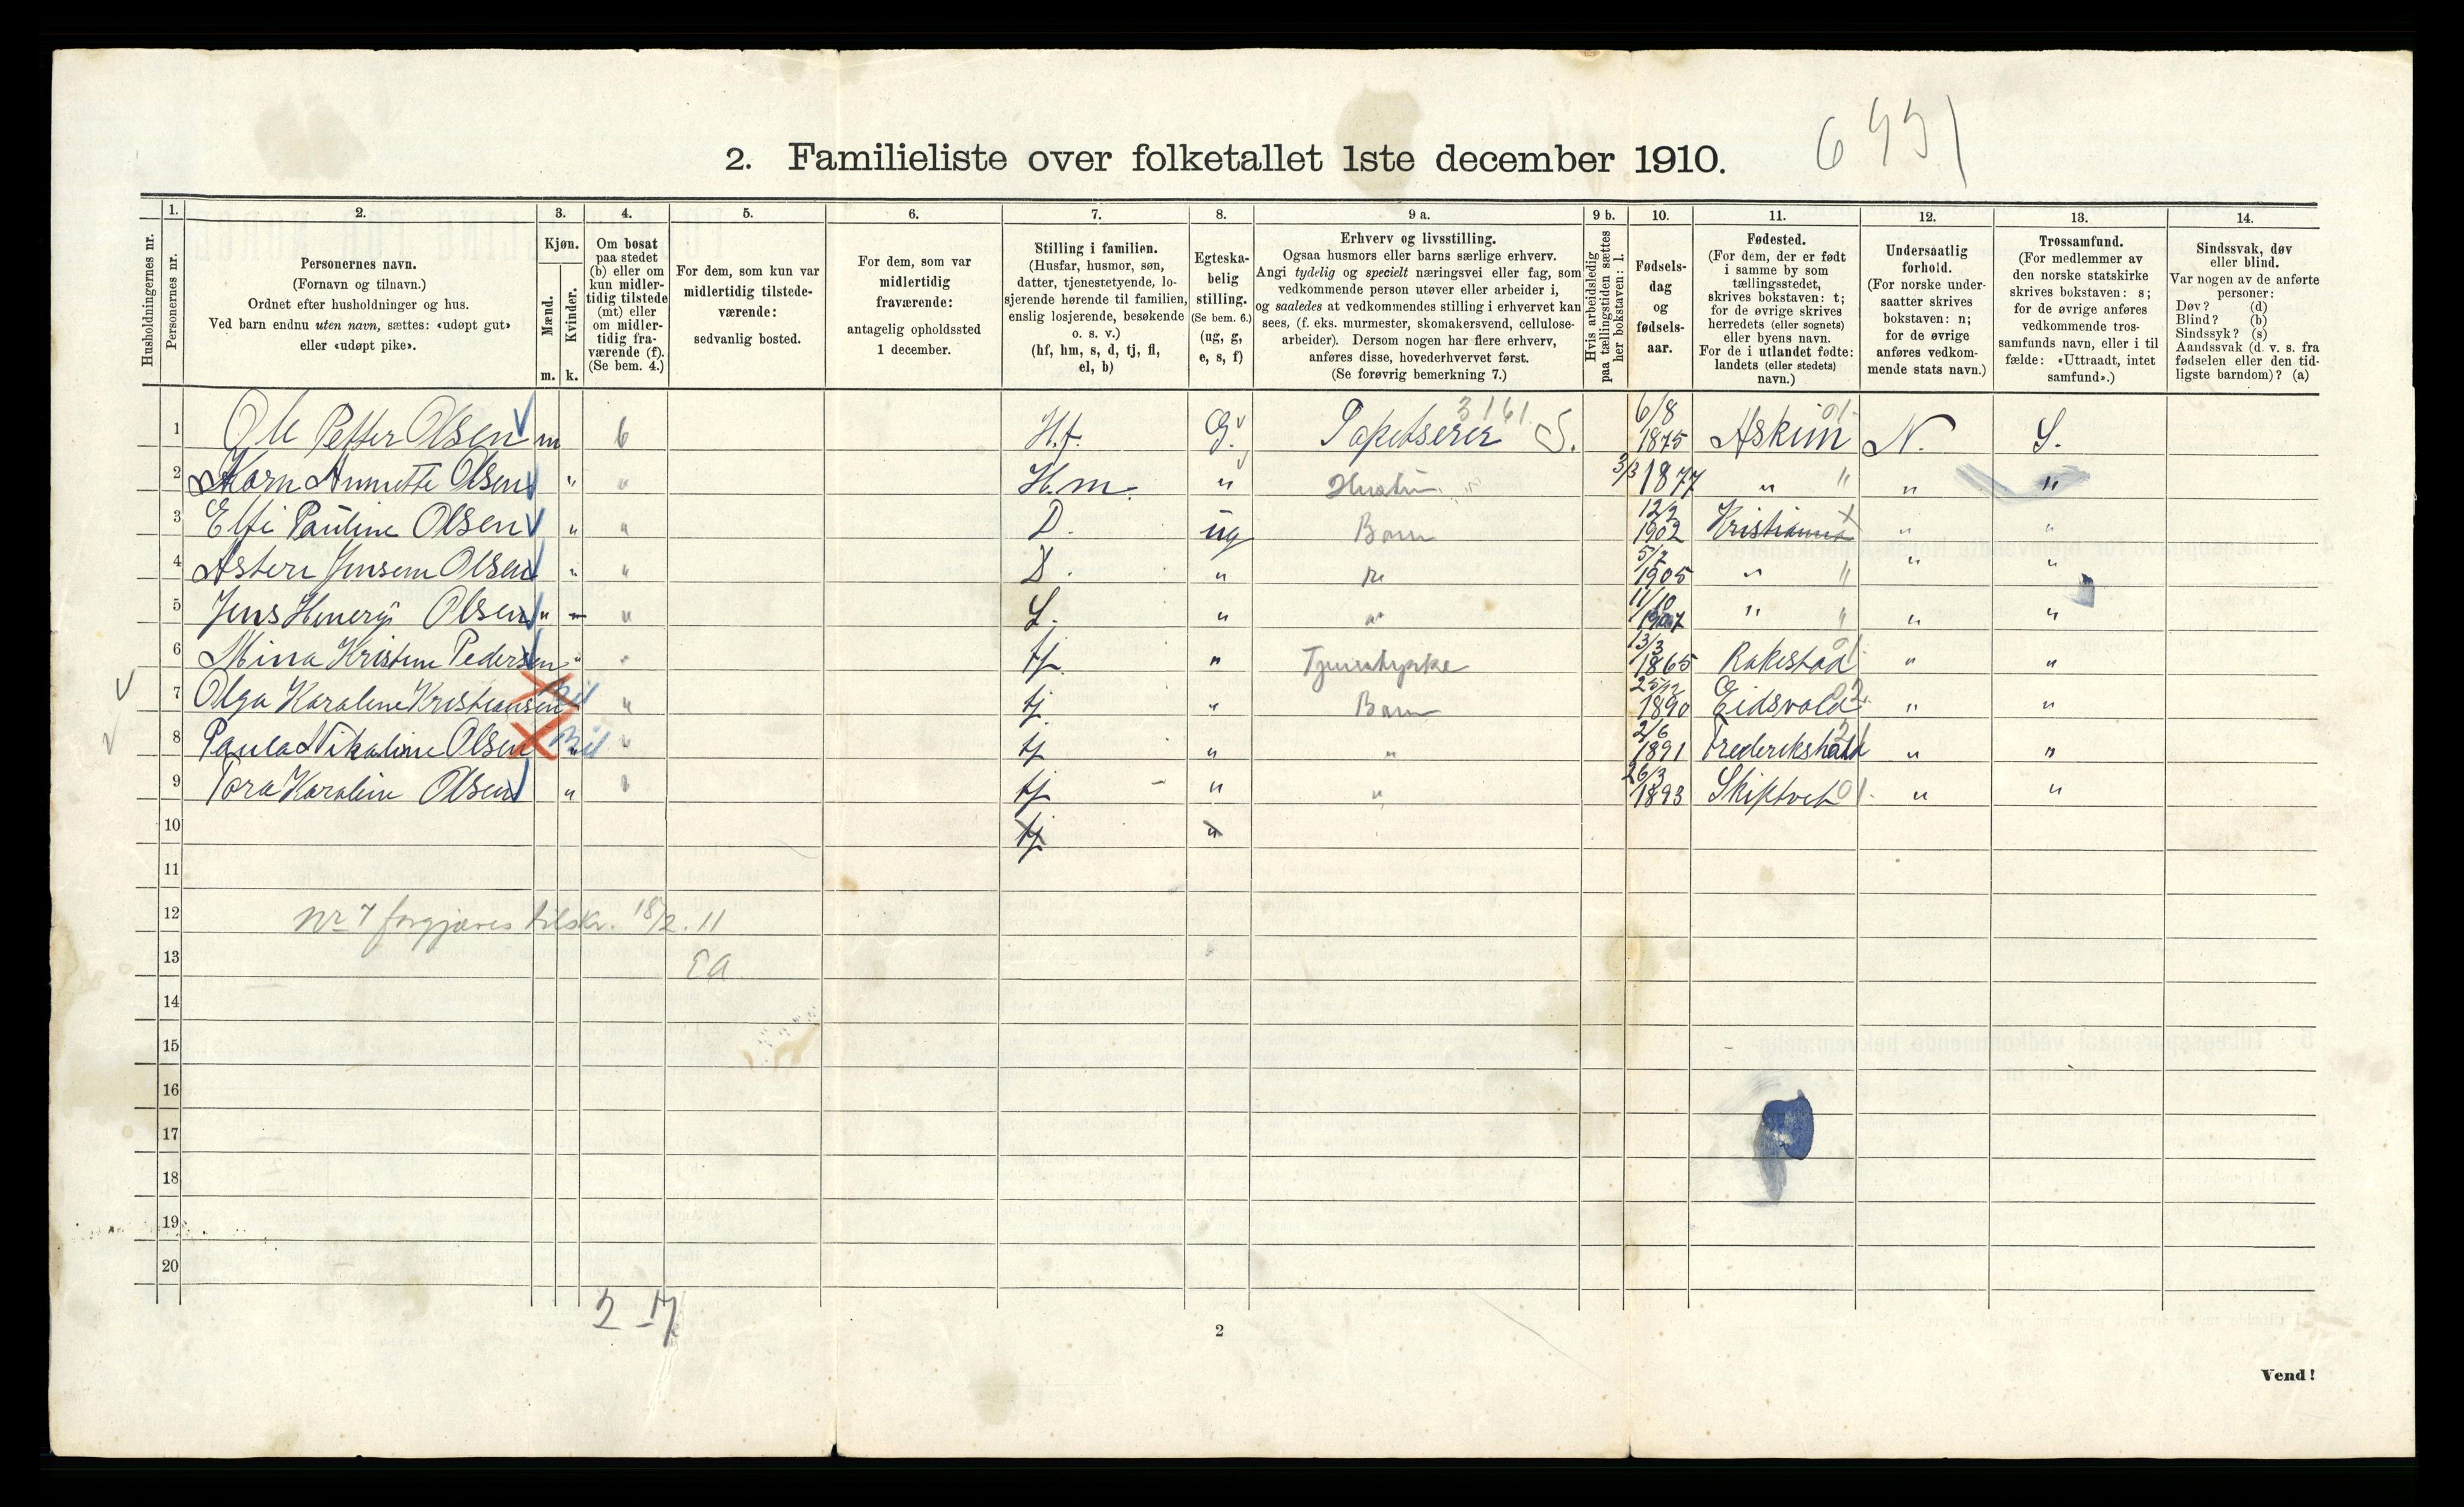 6991
2. Familieliste over folketallet 1ste december 1910.
Husholdningernes nr.
1.
Personernes nr.
2.
Personernes navn.
(Fornavn og tilnavn.)
Ordnet efter husholdninger og hus.
Ved barn endnu uten navn, sættes: «udøpt gut»
eller «udøpt pike».
3.
Kjøn.
Mænd.
Kvinder.
m. k.
4.
Om bosat
paa stedet
(b) eller om
kun midler-
tidig tilstede
(mt) eller
om midler-
tidig fra-
værende (f).
(Se bem. 4.)
5.
For dem, som kun var
midlertidig tilstede-
værende:
sedvanlig bosted.
6.
For dem, som var
midlertidig
fraværende:
antagelig opholdssted
1 december.
7.
Stilling i familien.
(Husfar, husmor, søn,
datter, tjenestetyende, lo-
sjerende hørende til familien,
enslig losjerende, besøkende
o. s. v.)
(hf, hm, s, d, tj, fl,
el, b)
8.
Egteska-
belig
stilling.
(Se bem. 6.)
(ug, g,
e, s, f)
9 a.
Erhverv og livsstilling.
Ogsaa husmors eller barns særlige erhverv.
Angi tydelig og specielt næringsvei eller fag, som
vedkommende person utøver eller arbeider i,
og saaledes at vedkommendes stilling i erhvervet kan
sees, (f. eks. murmester, skomakersvend, cellulose-
arbeider). Dersom nogen har flere erhverv,
anføres disse, hovederhvervet først.
(Se forøvrig bemerkning 7.)
9 b.
Hvis arbeidsledig
paa tællingstiden sættes
her bokstaven: l.
10.
Fødsels-
dag
og
fødsels-
aar.
11.
Fødested.
(For dem, der er født
i samme by som
tællingsstedet,
skrives bokstaven: t;
for de øvrige skrives
herredets (eller sognets)
eller byens navn.
For de i utlandet fødte:
landets (eller stedets)
navn.)
12.
Undersaatlig
forhold.
(For norske under-
saatter skrives
bokstaven: n;
for de øvrige
anføres vedkom-
mende stats navn.)
13.
Trossamfund.
(For medlemmer av
den norske statskirke
skrives bokstaven: s;
for de øvrige anføres
vedkommende tros-
samfunds navn, eller i til
fælde: «Uttraadt, intet
samfund».)
14.
Sindssvak, døv
eller blind.
Var nogen av de anførte
personer:
Døv? (d)
Blind? (b)
Sindssyk? (s)
Aandssvak (d. v. s. fra
fødselen eller den tid-
ligste barndom)? (a)
1 Ole Petter Olsen m b H.f. G. Tapetserer S. 3161 6/8 1875 Askim 01. N. S.
2 Karn Annette Olsen " " H.m. " Hustru 3/3 1877 " " " "
3 Elfi Pauline Olsen " " D. ug Barn 12/2 1902 Kristiania " "
4 Astern Jensem Olsen " " D. " 5/2 1905 " " " "
5 Jens Henery Olsen " " S. " " 11/10 1907 " " " "
6 Mina Kristine Pedersen " " tj. " 13/3 1865 Rakestad 01. " "
7 Olga Karaline Kristiansen " tj. " Barn 25/12 1890 Eidsvold 02. " "
8 Paula Nikoline Olsen " " tj " " 2/6 1891 Frederikshald 21 " "
9 Tora Karoline Olsen " " tj - " " 26/3 1893 Skiptvet 01. " "
10 tj "
11
12 Nr 7 forgjæves tilskr. 18/2. 11
13 EA
14
15
16
17
18
19
20
2 - 7
2
Vend!